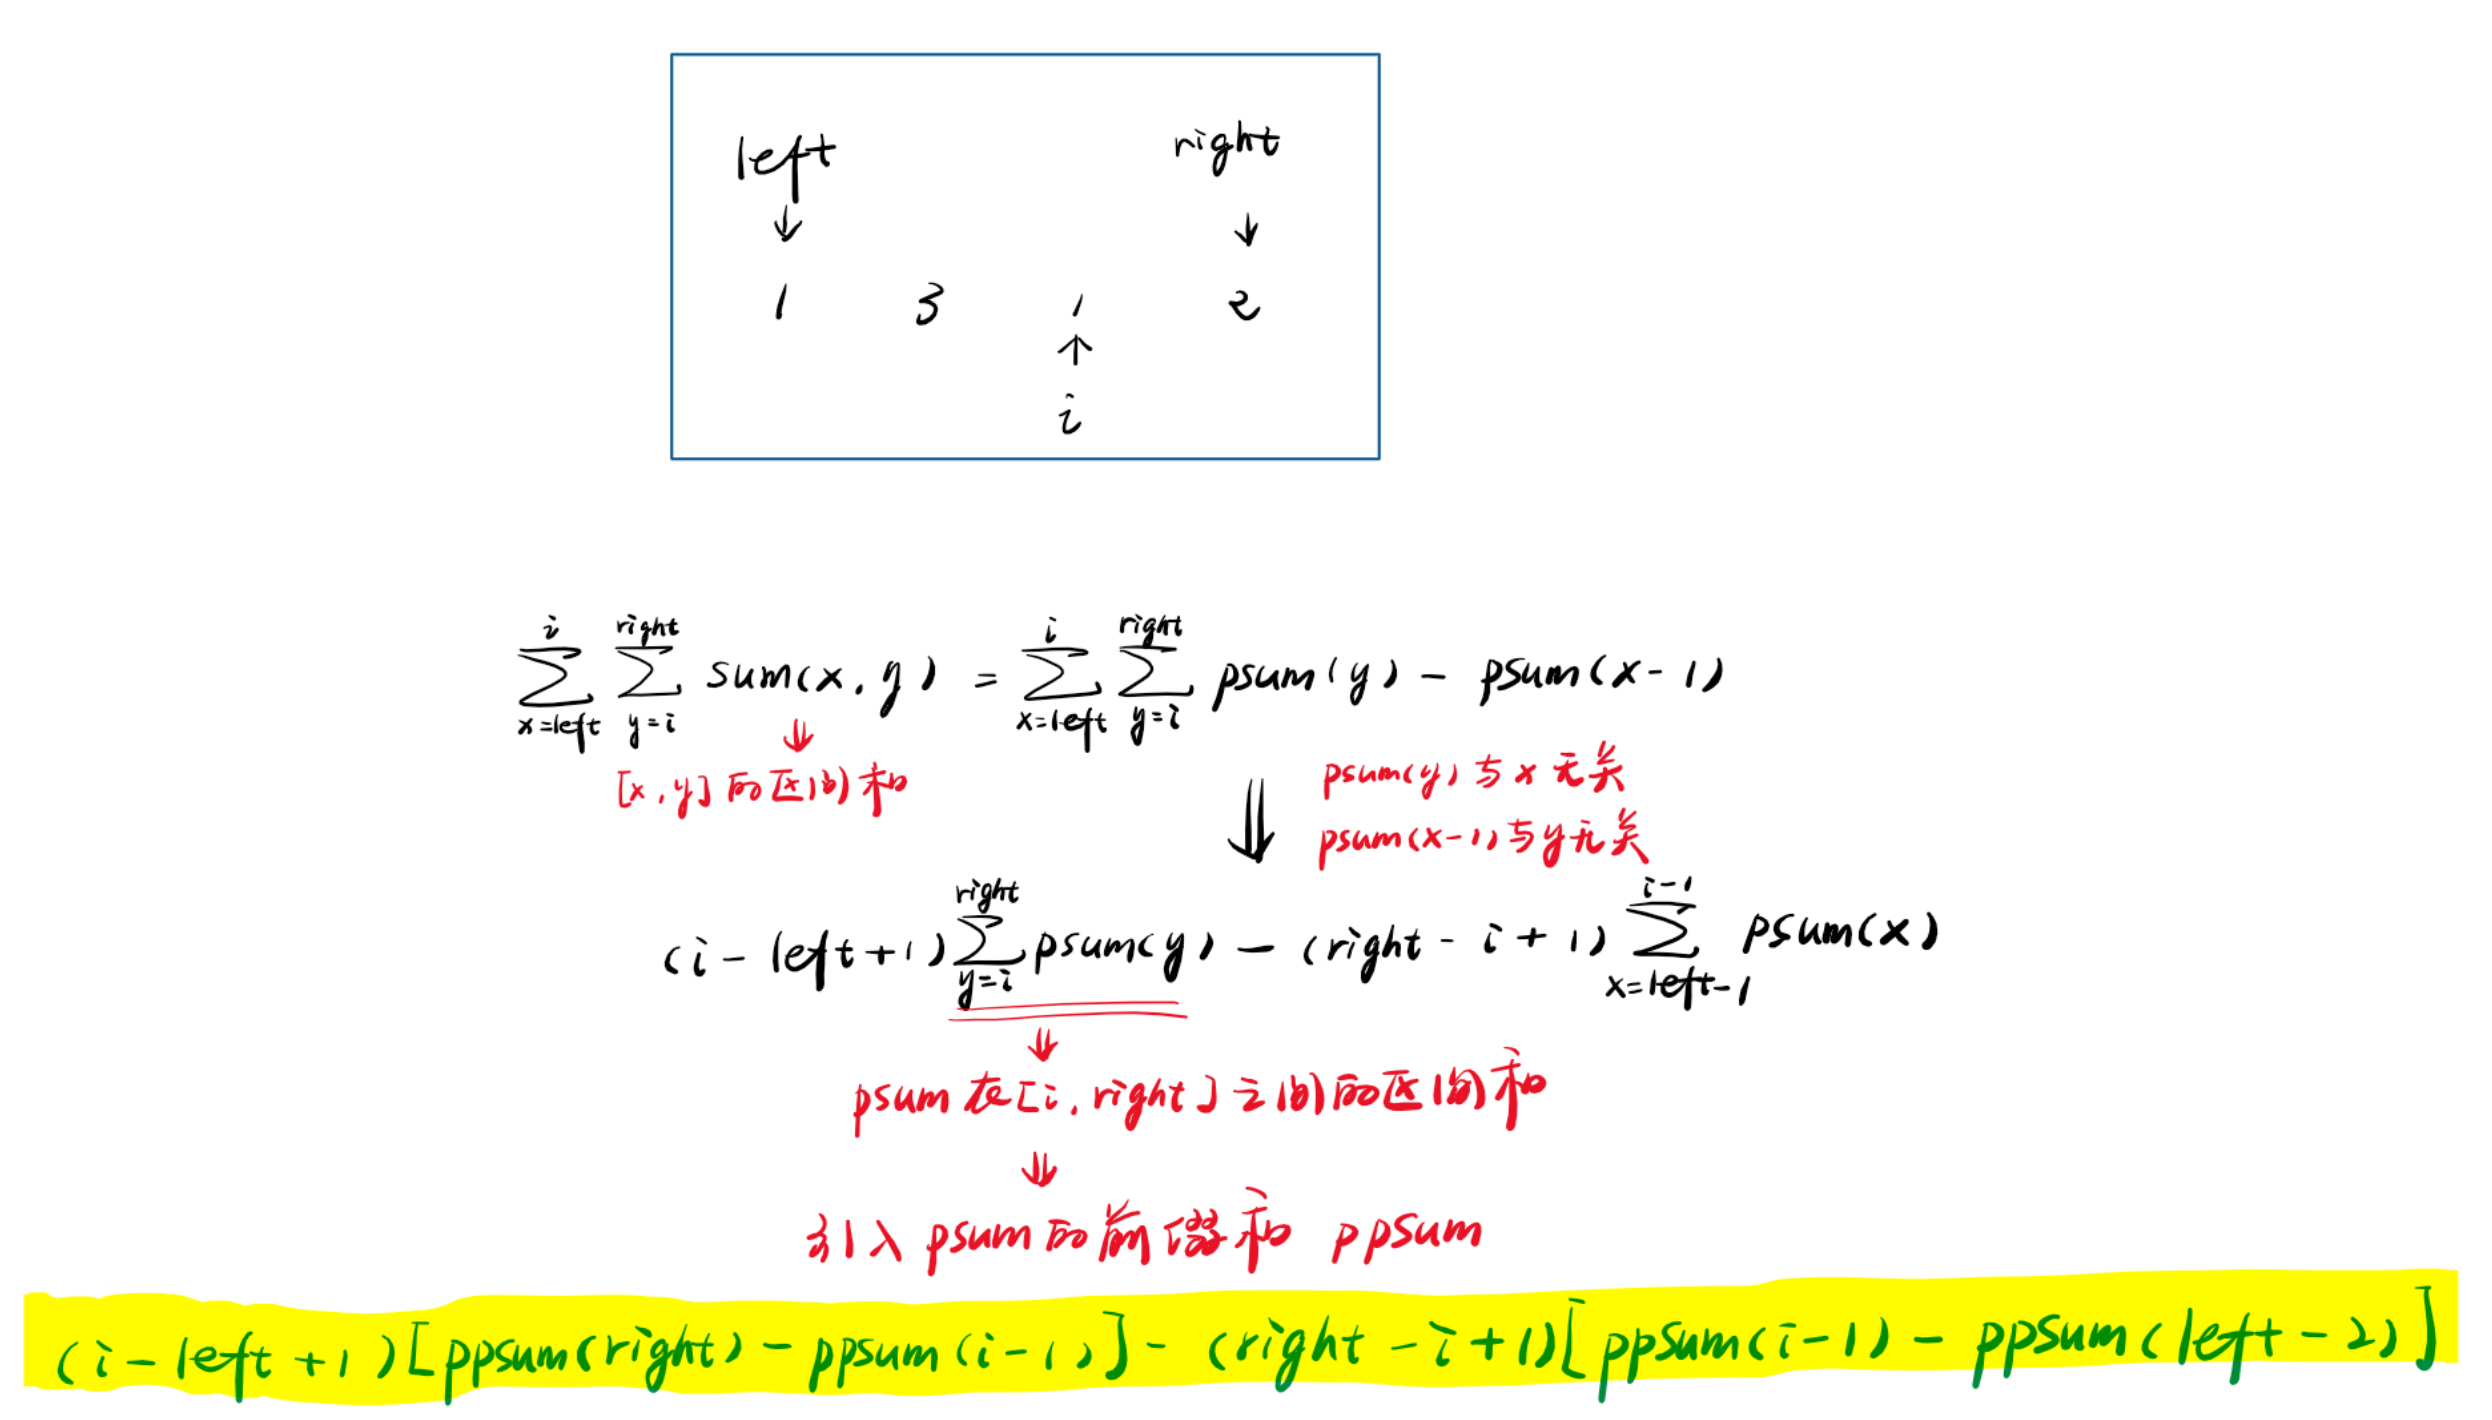 left right
↓ ↓
1 3 1 2
↑
i
\sum_{x=left}^{i} \sum_{y=i}^{right} sum(x,y) = \sum_{x=left}^{i} \sum_{y=i}^{right} psum(y) - psum(x-1)
↓
[x,y]的区间和
⇓ psum(y)与x无关
psum(x-1)与y无关
(i-left+1) \sum_{y=i}^{right} psum(y) - (right-i+1) \sum_{x=left-1}^{i-1} psum(x)
⇓
psum在[i,right]之间的区间和
⇓
引入psum的前缀和 ppsum
(i-left+1)[ppsum(right)-ppsum(i-1)]-(right-i+1)[ppsum(i-1)-ppsum(left-2)]